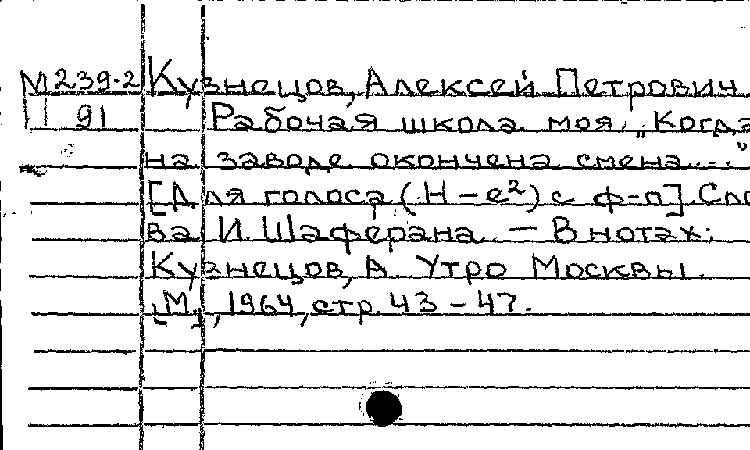 М239-2 Кузнецов, Алексей Петрович
П 91 Рабочая школа моя. „Когда
на заводе окончена смена...."
[Для голоса (H – e²) с ф-п]. Сло
ва И. Шаферана. – В нотах:
Кузнецов, А. Утро Москвы.
[М.], 1964, стр. 43 – 47.